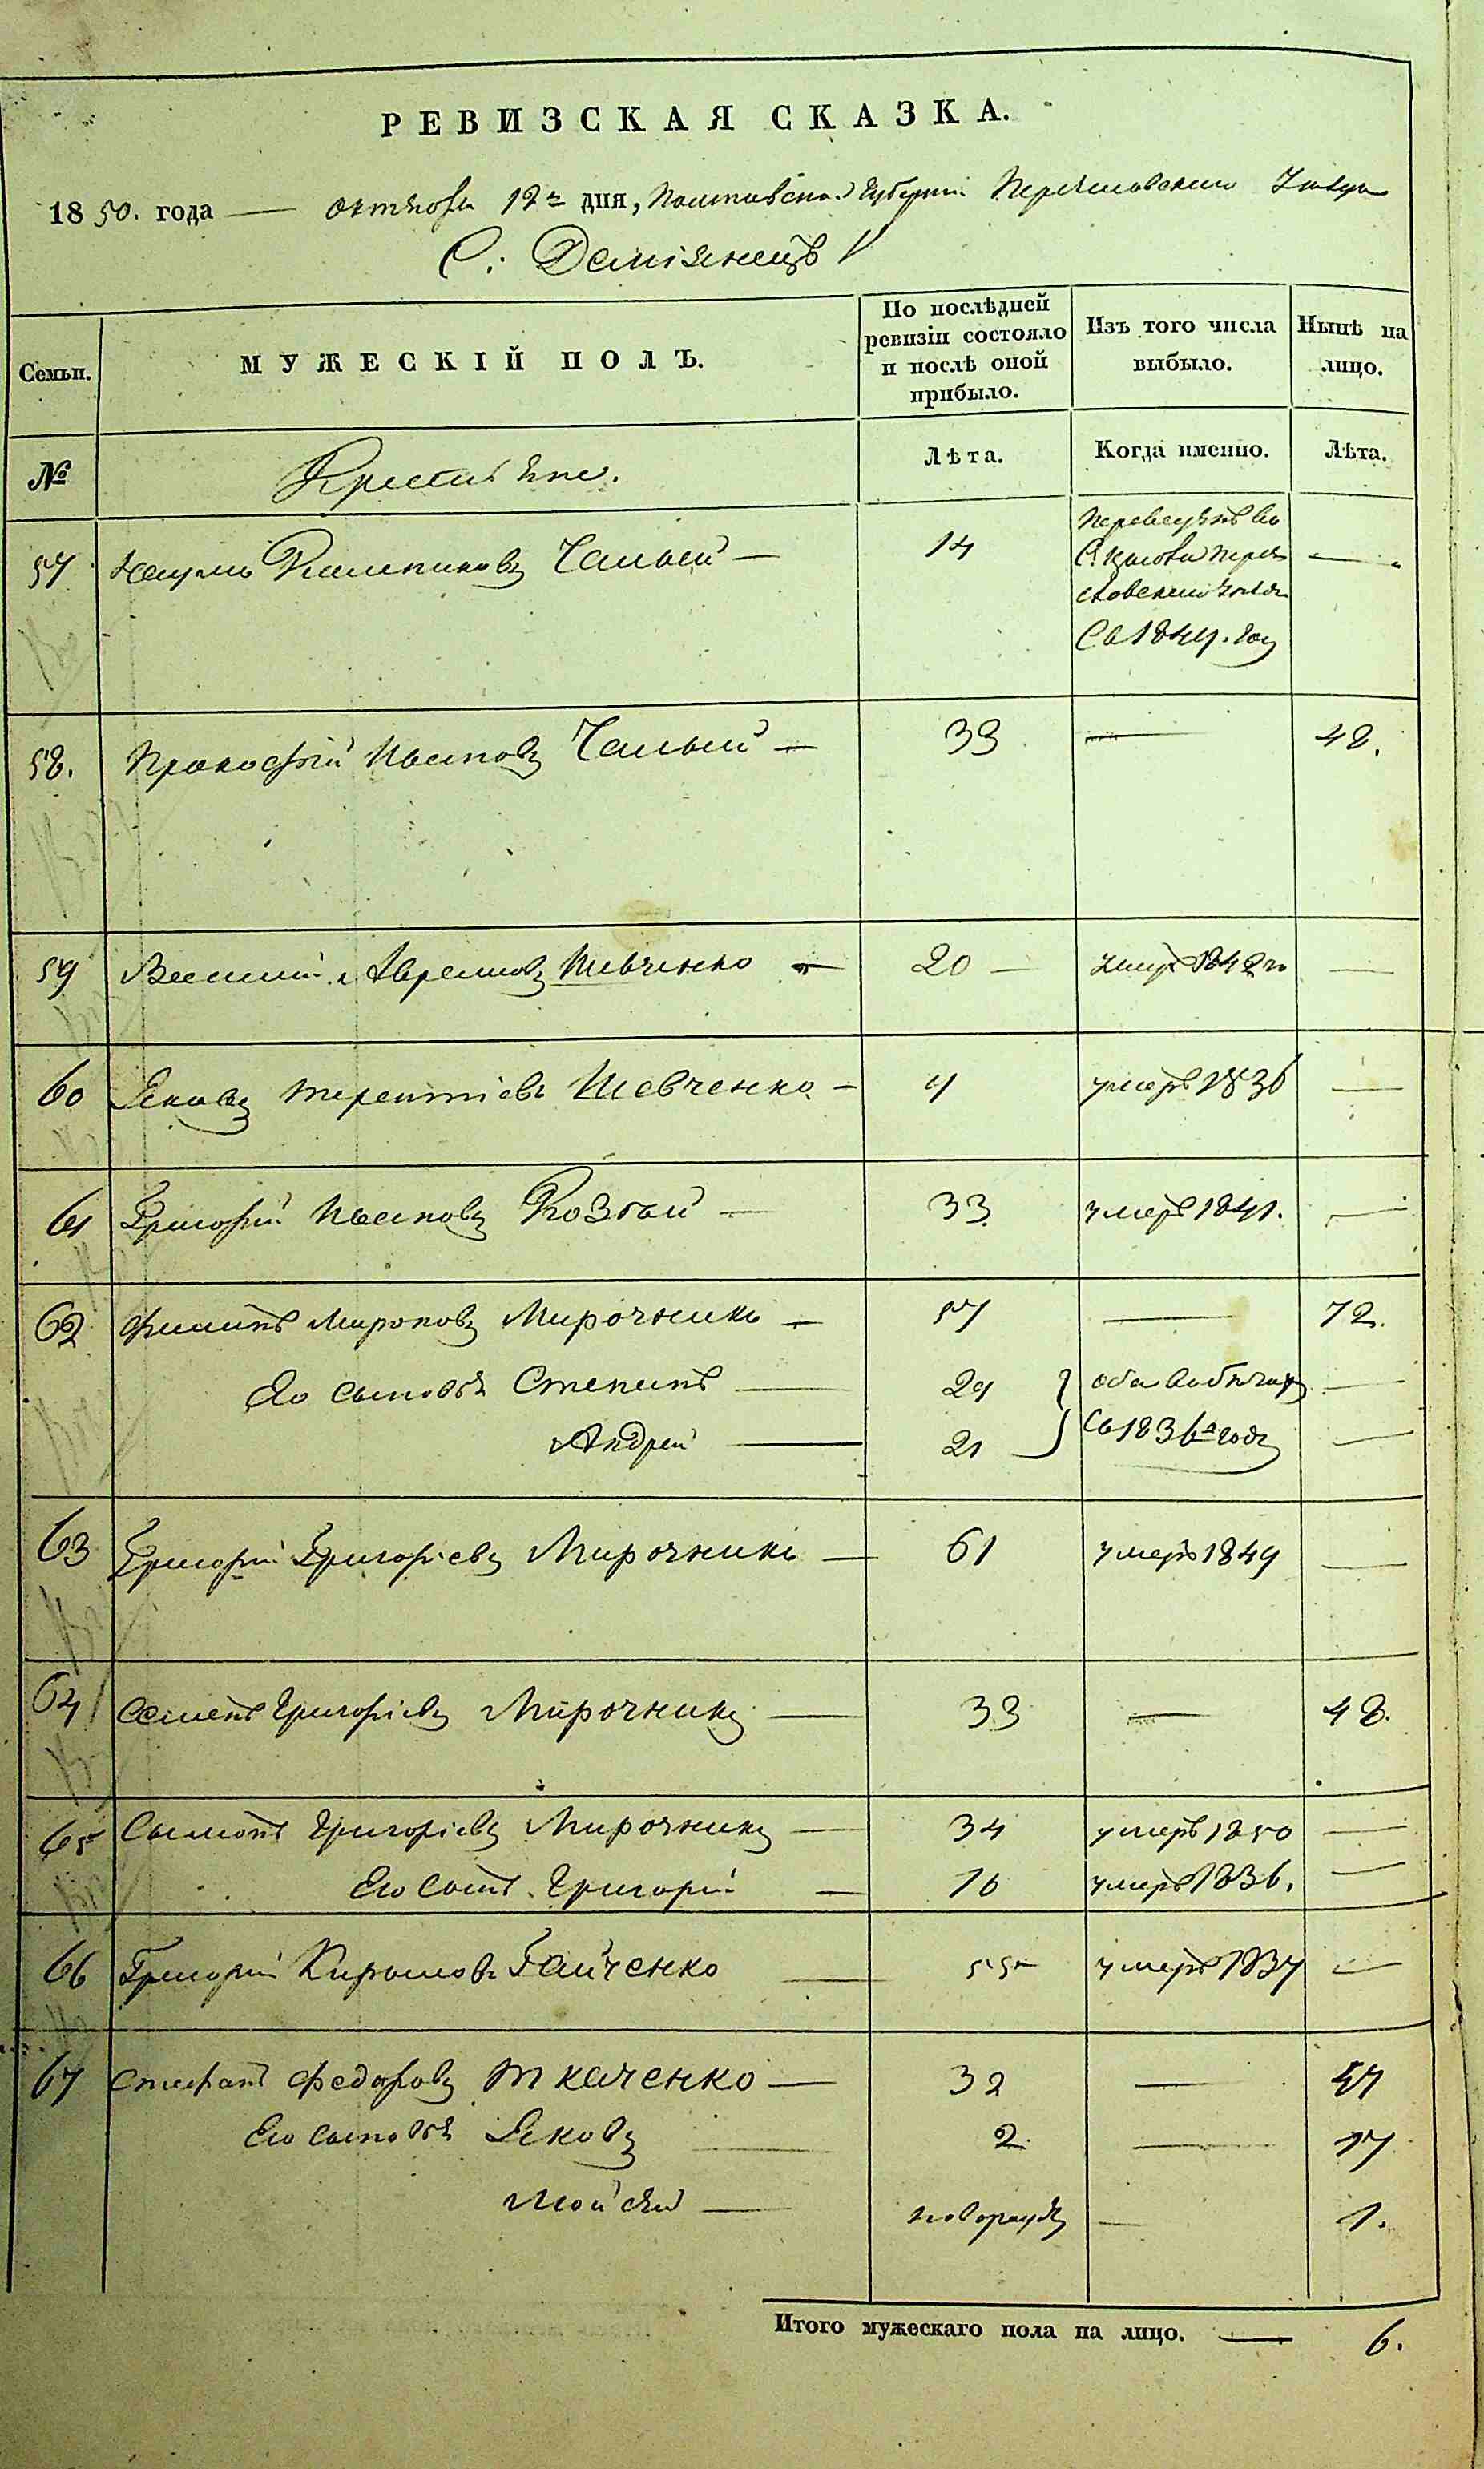 РЕВИЗСКАЯ СКАЗКА.
1850. года — октября 12го дня, Полтавской Губерніи Переяславскаго Уезда
С. Деміянецъ
Семьи.
МУЖЕСКІЙ ПОЛЪ.
По послѣдней ревизіи состояло и послѣ оной прибыло.
Изъ того числа выбыло.
Нынѣ на лицо.
№
Крестьяне.
Лѣта.
Когда именно.
Лѣта.
57 Наумъ Калениковъ Чалый — 14 Переведенъ во
С. Переяславскаго уезда
Съ 184 году —
58. Прокофій Ивановъ Чалый — 33 — 48.
59 Василій Аврамовъ Шевченко — 20 — умеръ 1842го —
60 Яковъ Терентіевъ Шевченко — 4 умеръ 1836 —
61 Григорій Ивановъ Козгай — 33 умеръ 1841. —
62 Филипъ Мироновъ Мирочникъ — 57 — 72.
Его сыновья Степанъ — 29 оба въ бегахъ —
Андрей — 21 Съ 1836го года —
63 Григорій Григоріевъ Мирочникъ — 61 умеръ 1849 —
64 Семенъ Григоріевъ Мирочникъ — 33 — 48.
65 Сымонъ Григоріевъ Мирочникъ — 34 умеръ 1850 —
Его Сынъ Григорій — 16 умеръ 1836. —
66 Григорій Кириловъ Гайченко — 55 умеръ 1837 —
67 Стефанъ Федоровъ Ткаченко — 32 — 47
Его сыновья Яковъ — 2 — 17
Мойсей — новорожд — 1.
Итого мужескаго пола на лицо. — 6.